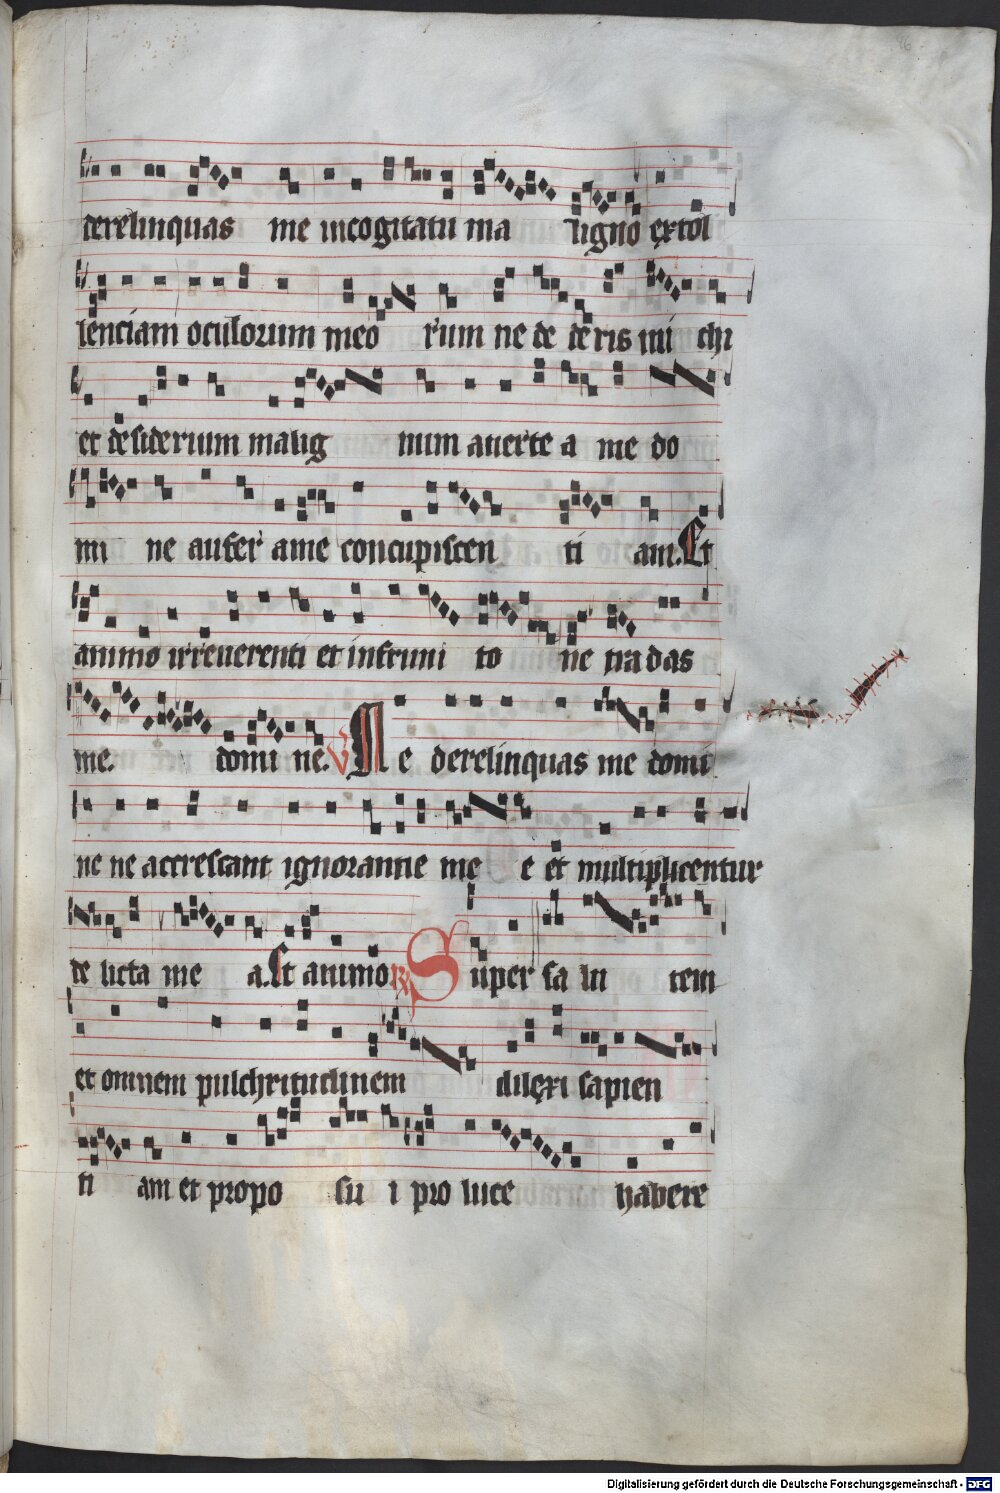 derelinquas me incogitatu ma ligno extol
lenciam oculorum meo rum ne de de ris mi chi
et desiderium malig num auerte a me do
mi ne aufer ame concupiscen ti am. Et
animo irreuerenti et infruni to ne tradas
me. domi ne. V Ne derelinquas me domi
ne ne accrescant ignorantie me e et multiplicentur
de licta me a. Et animo. R Super sa lu tem
et omnem pulchritudinem dilexi sapien
ti am et propo su i pro luce habere
Digitalisierung gefördert durch die Deutsche Forschungsgemeinschaft - DFG